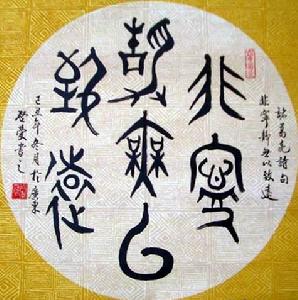 諸葛亮詩句
非寧靜無以致遠
非寧
靜無以
致遠
己丑年冬月於廣東
書之